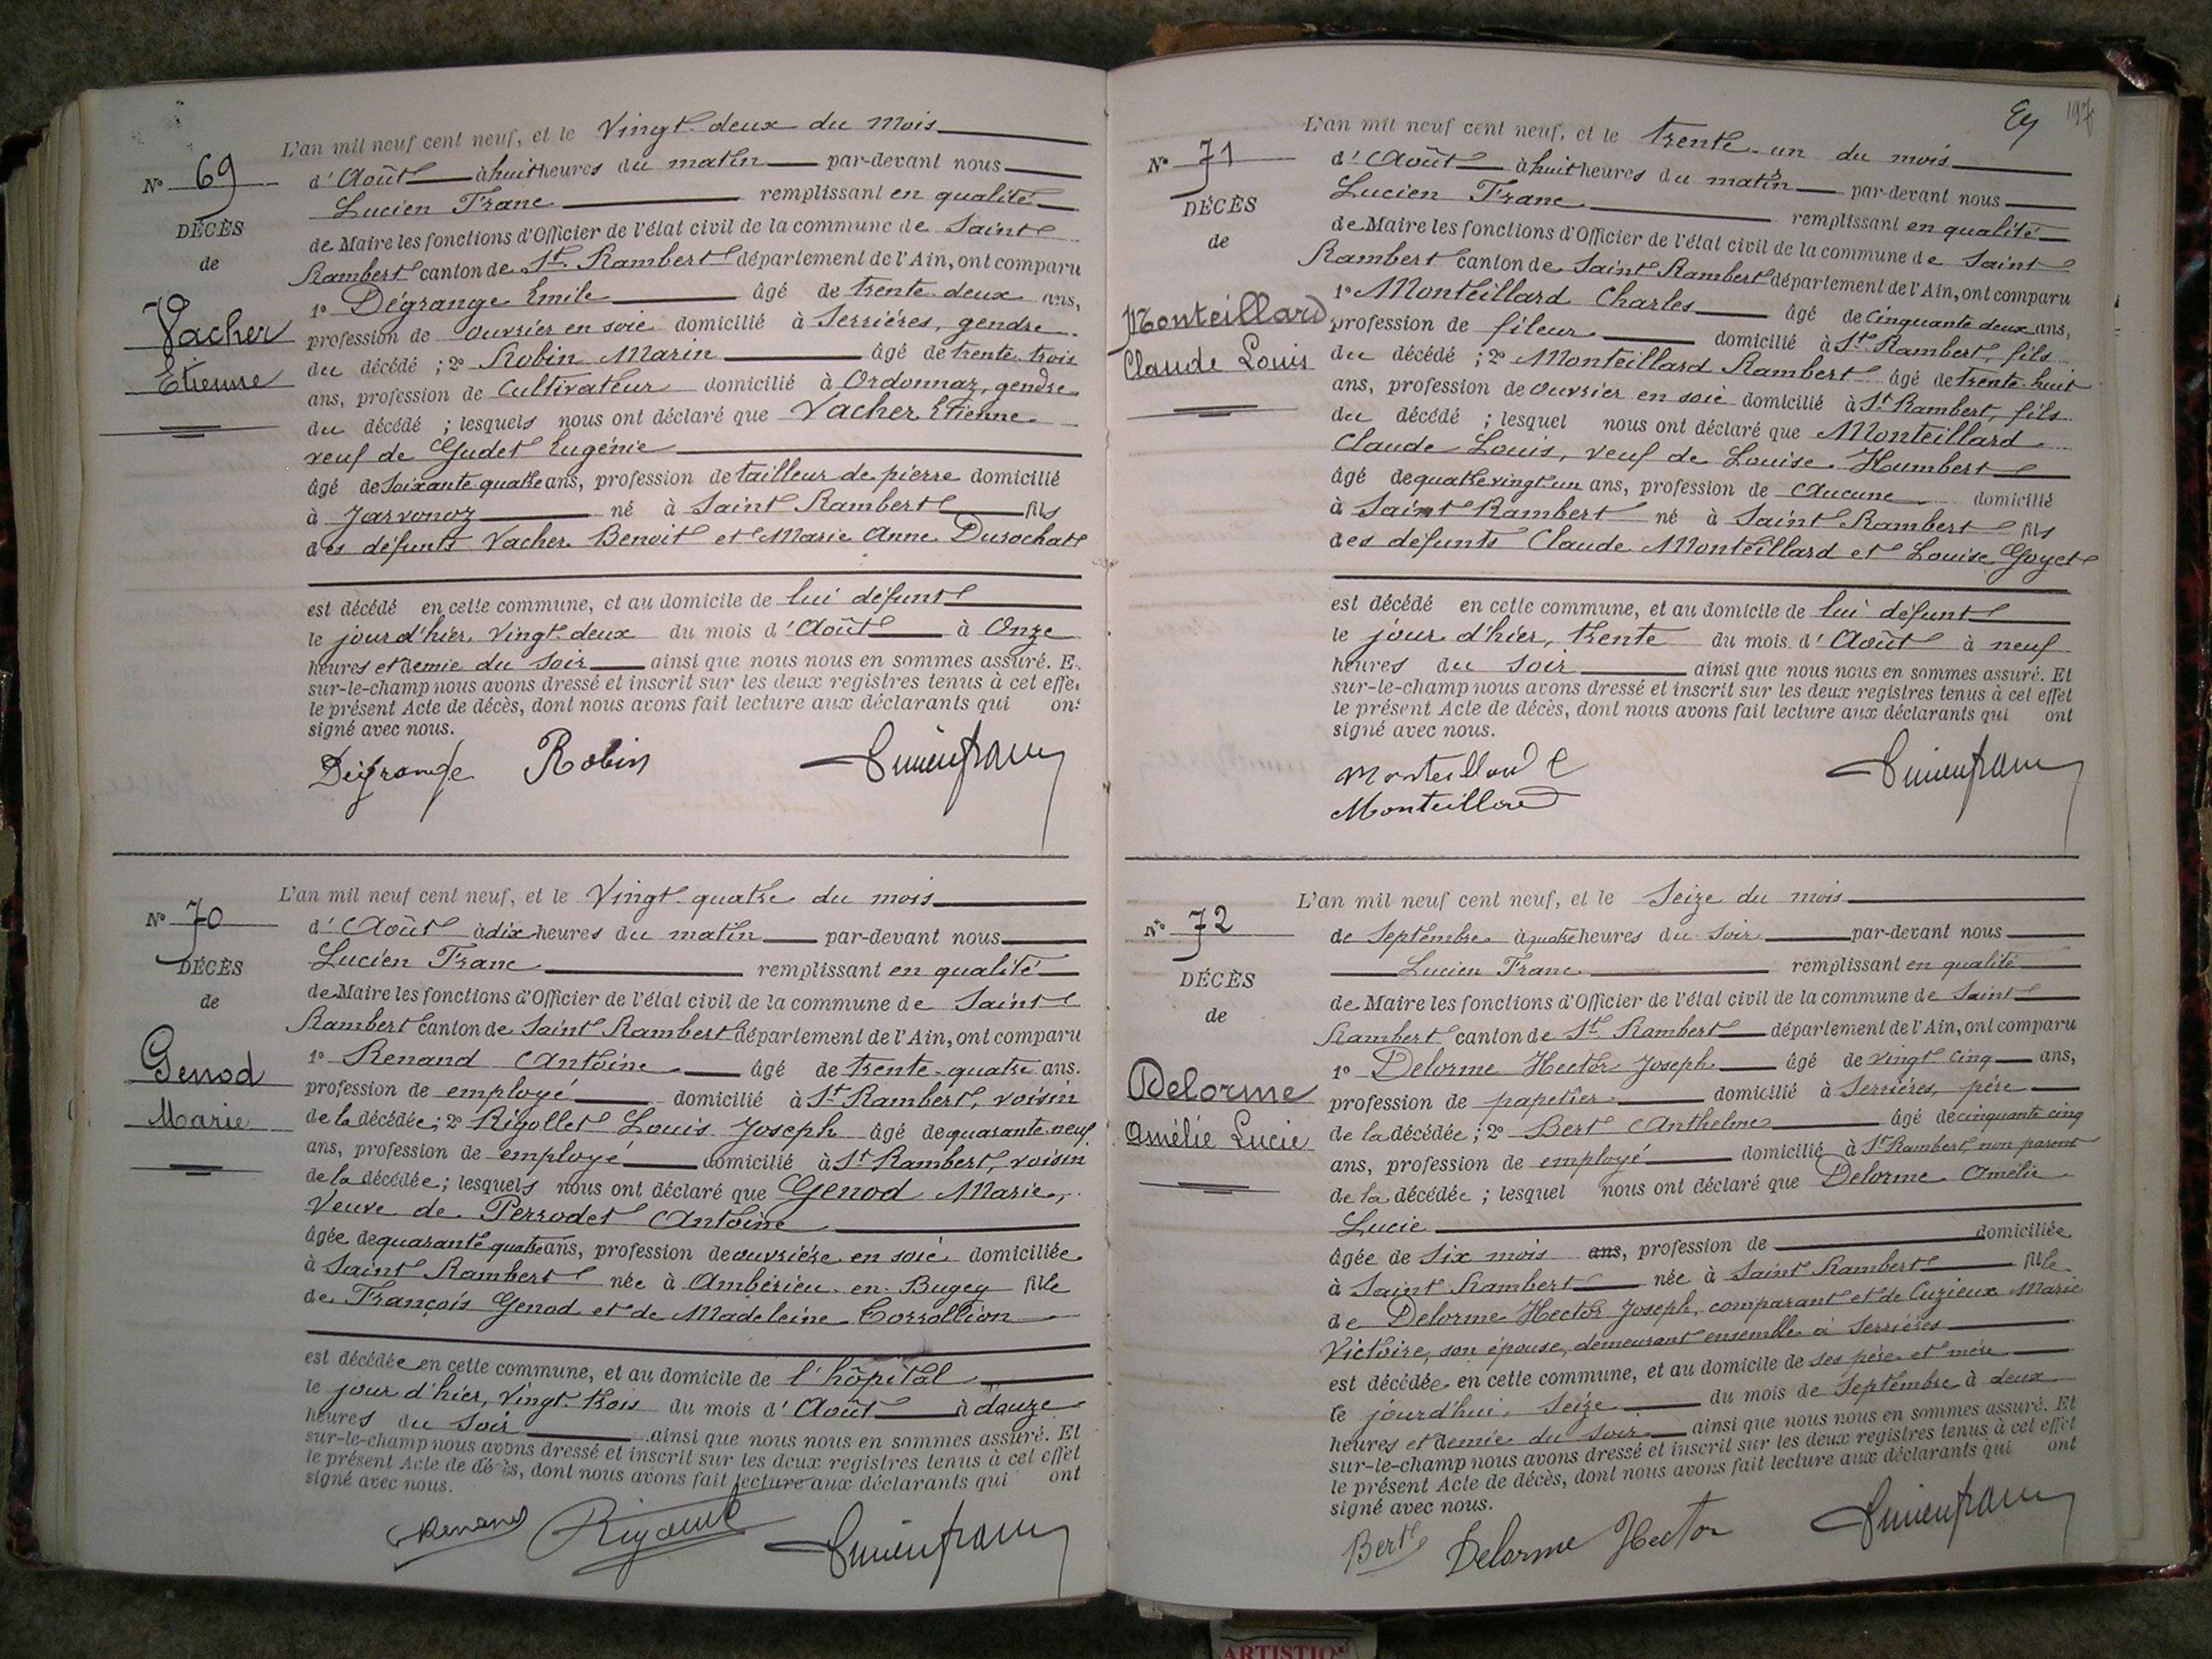 N° 69
DÉCÈS
de
Vacher
Etienne
L'an mil neuf cent neuf, et le Vingt-deux du mois
d'Août à huit heures du matin par-devant nous
Lucien Franc remplissant en qualité
de Maire les fonctions d'Officier de l'état civil de la commune de Saint
Rambert canton de St. Rambert département de l'Ain, ont comparu
1° Dégrange Emile âgé de trente-deux ans,
profession de ouvrier en soie domicilié à Serrières, gendre
du décédé ; 2° Robin Marin âgé de trente trois
ans, profession de Cultivateur domicilié à Ordonnaz, gendre
du décédé ; lesquels nous ont déclaré que Vacher Etienne
veuf de Gudet Eugénie
âgé de soixante quatre ans, profession de tailleur de pierre domicilié
à Javornoz né à Saint Rambert fils
des défunts Vacher Benoit et Marie Anne Durochat
est décédé en cette commune, et au domicile de lui défunt
le jour d'hier, vingt-deux du mois d'Août à Onze
heures et demie du soir ainsi que nous nous en sommes assuré. E
sur-le-champ nous avons dressé et inscrit sur les deux registres tenus à cet effe
le présent Acte de décès, dont nous avons fait lecture aux déclarants qui on
signé avec nous.
Dégrange Robin Lucien Franc
N° 70
DÉCÈS
de
Genod
Marie
L'an mil neuf cent neuf, et le Vingt-quatre du mois
d'Août à dix heures du matin par-devant nous
Lucien Franc remplissant en qualité
de Maire les fonctions d'Officier de l'état civil de la commune de Saint
Rambert canton de Saint Rambert département de l'Ain, ont comparu
1° Renand Antoine âgé de trente-quatre ans.
profession de employé domicilié à St Rambert, voisin
de la décédée ; 2° Rigollet Louis Joseph âgé de quarante-neuf
ans, profession de employé domicilié à St Rambert, voisin
de la décédée ; lesquels nous ont déclaré que Genod Marie,
Veuve de Perrodet Antoine
âgée de quarante quatre ans, profession de ouvrière en soie domiciliée
à Saint Rambert née à Ambérieu-en-Bugey fille
de François Genod et de Madeleine Corrollion
est décédée en cette commune, et au domicile de l'hôpital
le jour d'hier, Vingt-trois du mois d'Août à douze
heures du soir ainsi que nous nous en sommes assuré. Et
sur-le-champ nous avons dressé et inscrit sur les deux registres tenus à cet effet
le présent Acte de décès, dont nous avons fait lecture aux déclarants qui ont
signé avec nous.
Renand Lucien Franc
Ey 197
N° 71
DÉCÈS
de
Monteillard
Claude Louis
L'an mil neuf cent neuf, et le trente-un du mois
d'Août à huit heures du matin par-devant nous
Lucien Franc remplissant en qualité
de Maire les fonctions d'Officier de l'état civil de la commune de Saint
Rambert canton de Saint Rambert département de l'Ain, ont comparu
1° Monteillard Charles âgé de Cinquante deux ans,
profession de fileur domicilié à St Rambert, fils
du décédé ; 2° Monteillard Rambert âgé de trente-huit
ans, profession de Ouvrier en soie domicilié à St Rambert, fils
du décédé ; lesquel nous ont déclaré que Monteillard
Claude Louis, veuf de Louise Humbert
âgé de quatre vingt un ans, profession de Aucune domicilié
à Saint Rambert né à Saint Rambert fils
des défunts Claude Monteillard et Louise Goyet
est décédé en cette commune, et au domicile de lui défunt
le jour d'hier, trente du mois d'Août à neuf
heures du soir ainsi que nous nous en sommes assuré. Et
sur-le-champ nous avons dressé et inscrit sur les deux registres tenus à cet effet
le présent Acte de décès, dont nous avons fait lecture aux déclarants qui ont
signé avec nous.
Monteillard C
Monteillard Lucien Franc
N° 72
DÉCÈS
de
Delorme
Amélie Lucie
L'an mil neuf cent neuf, et le Seize du mois
de Septembre à quatre heures du soir par-devant nous
Lucien Franc remplissant en qualité
de Maire les fonctions d'Officier de l'état civil de la commune de Saint
Rambert canton de St. Rambert département de l'Ain, ont comparu
1° Delorme Hector Joseph âgé de vingt cinq ans,
profession de papetier domicilié à Serrières, père
de la décédée ; 2° Bert Anthelme âgé de cinquante cinq
ans, profession de employé domicilié à St Rambert, non parent
de la décédée ; lesquel nous ont déclaré que Delorme Amélie
Lucie
âgée de six mois ans, profession de domiciliée
à Saint Rambert née à Saint Rambert fille
de Delorme Hector Joseph, comparant et de Cuzieux Marie
Victoire, son épouse, demeurant ensemble à Serrières
est décédée en cette commune, et au domicile de ses père et mère
le jourd'hui, Seize du mois de Septembre à deux
heures et demie du soir ainsi que nous nous en sommes assuré. Et
sur-le-champ nous avons dressé et inscrit sur les deux registres tenus à cet effet
le présent Acte de décès, dont nous avons fait lecture aux déclarants qui ont
signé avec nous.
Bert Delorme Hector Lucien Franc
ARTISTION